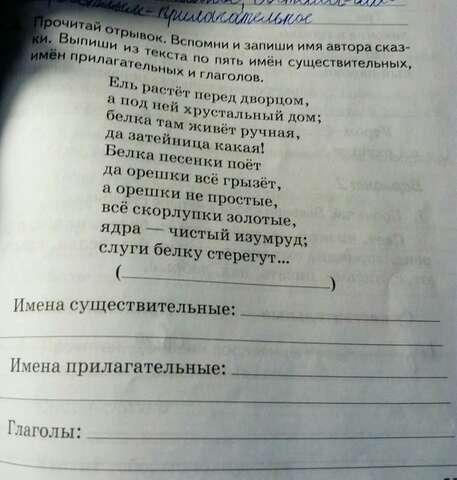 прилагательное
Прочитай отрывок. Вспомни и запиши имя автора сказ-
ки. Выпиши из текста по пять имён существительных,
имён прилагательных и глаголов.
Ель растёт перед дворцом,
а под ней хрустальный дом;
белка там живёт ручная,
да затейница какая!
Белка песенки поёт
да орешки всё грызёт,
а орешки не простые,
всё скорлупки золотые,
ядра — чистый изумруд;
слуги белку стерегут...
(____________________)
Имена существительные:
Имена прилагательные:
Глаголы: